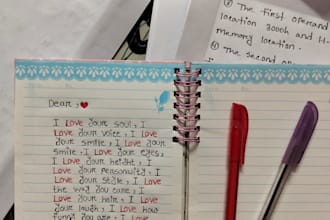 ① The first operand
location 3000h and H-
memory location.
② The second on
Dear, ❤
I Love your soul, I
Love your voice, I Love
your smile, I Love your
smile, I Love your eyes,
I Love your height, I
Love your personality, I
Love your style, I Love
the way you care, I
Love your hair, I Love
your laugh, I Love how
funny you are, I Love